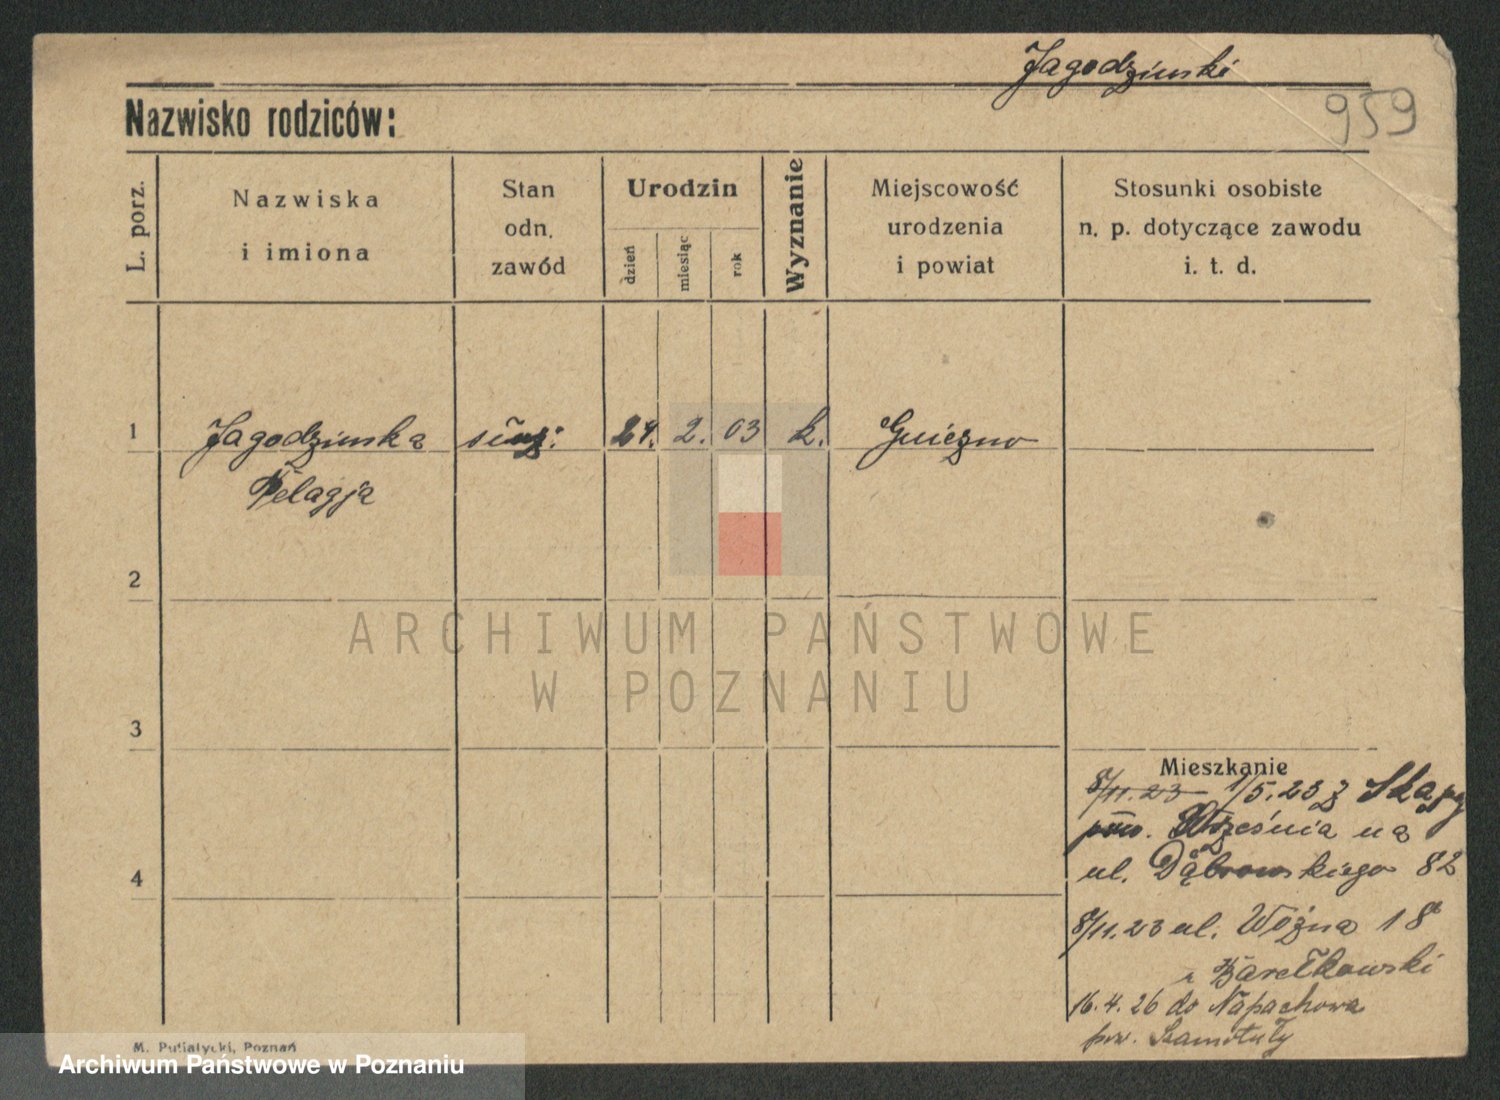 Jagodzinski
959
Nazwisko rodziców:
L. porz.
Nazwiska
i imiona
Stan
odn.
zawód
Urodzin
dzień
miesiąc
rok
Wyznanie
Miejscowość
urodzenia
i powiat
Stosunki osobiste
n. p. dotyczące zawodu
i. t. d.
1 Jagodzinska 24. 2. 03 k. Gniezno
Pelagja
2
3
4
Mieszkanie
8/11.23 1/5.23 z
pow. Września na
ul. Dąbrowskiego 82
8/11.23 ul. Woźna 18
Barełkowski
16.4.26 do Napachowa
pow. Szamotuły
M. Putiatycki, Poznań
ARCHIWUM PAŃSTWOWE
W POZNANIU
Archiwum Państwowe w Poznaniu